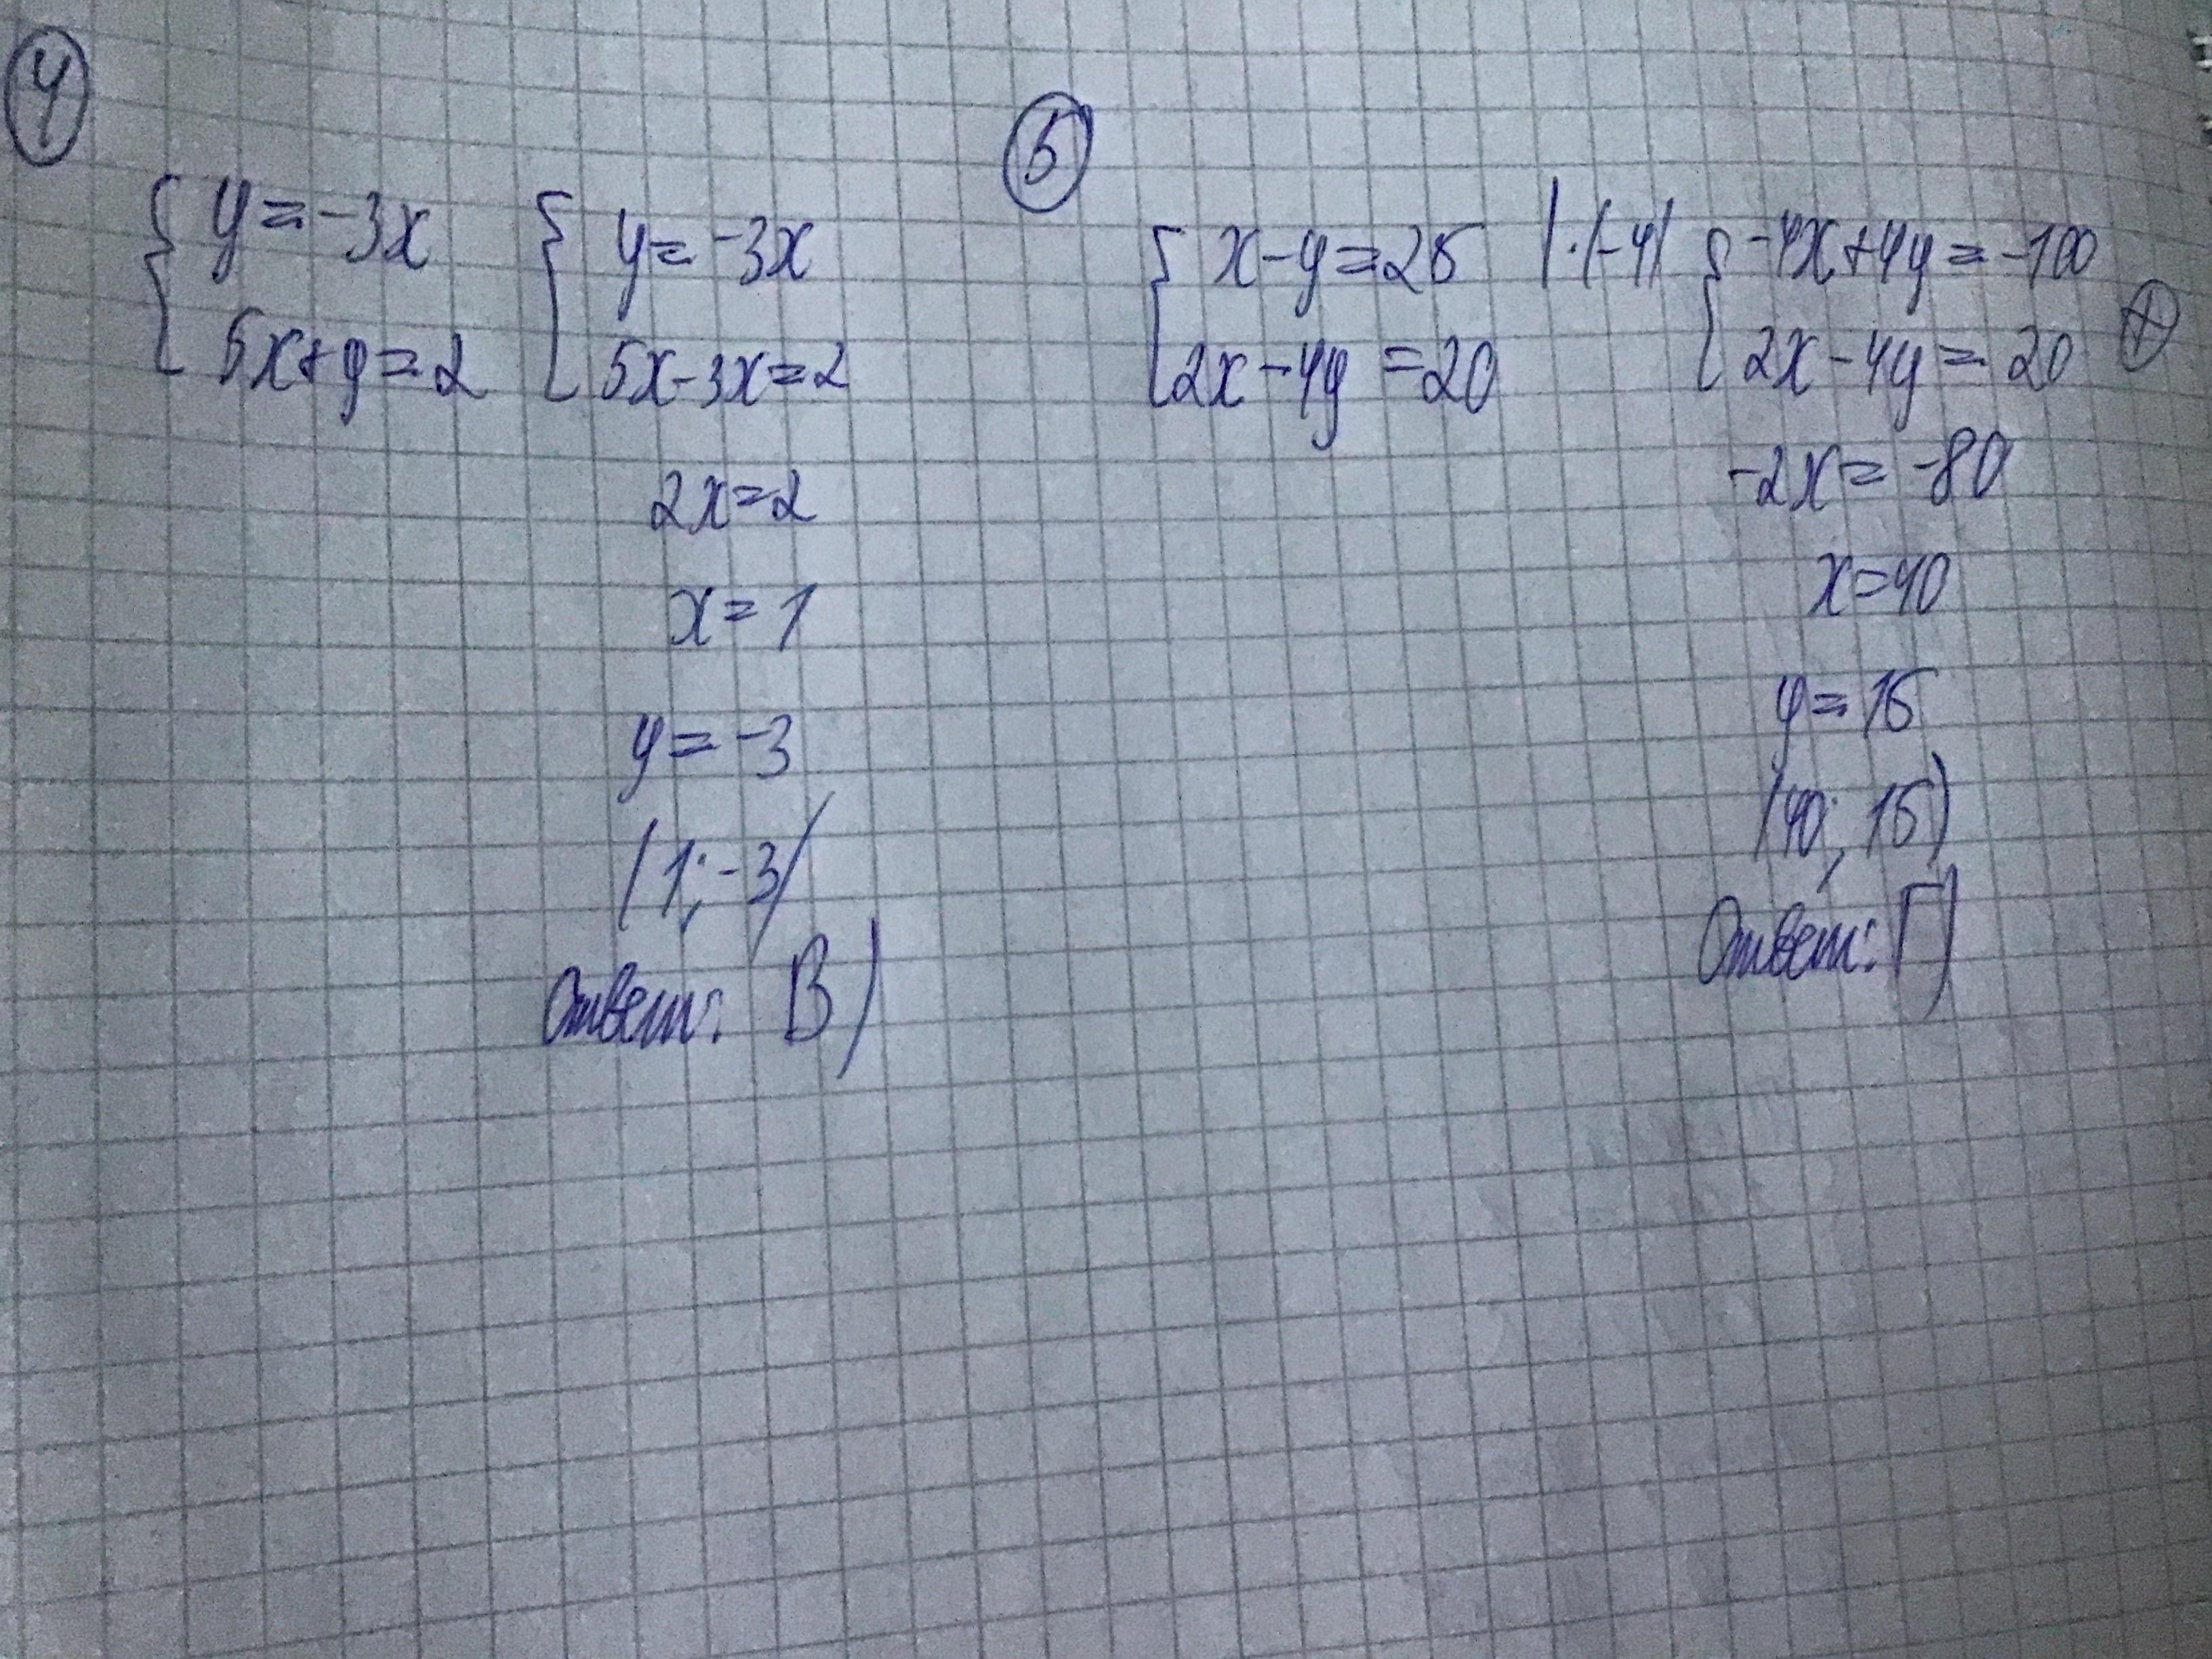 4
{ y = -3x { y = -3x
5x + y = 2 5x - 3x = 2
2x = 2
x = 1
y = -3
(1; -3)
Ответ: В)
5
{ x - y = 25 | · (-4) { -4x + 4y = -100
2x - 4y = 20 2x - 4y = 20 ⊕
-2x = -80
x = 40
y = 15
(40; 15)
Ответ: Г)